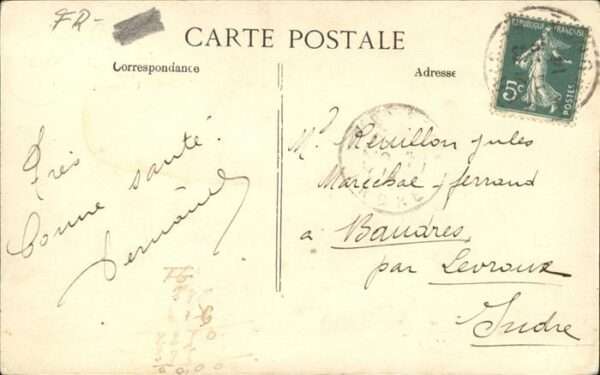 FR-
CARTE POSTALE
Correspondance
Adresse
REPUBLIQUE FRANÇAISE
5c
POSTES
Très
bonne santé.
Fernand
Mr Revillon Jules
Maréchal ferrand
a Baudres
par Levroux
Indre